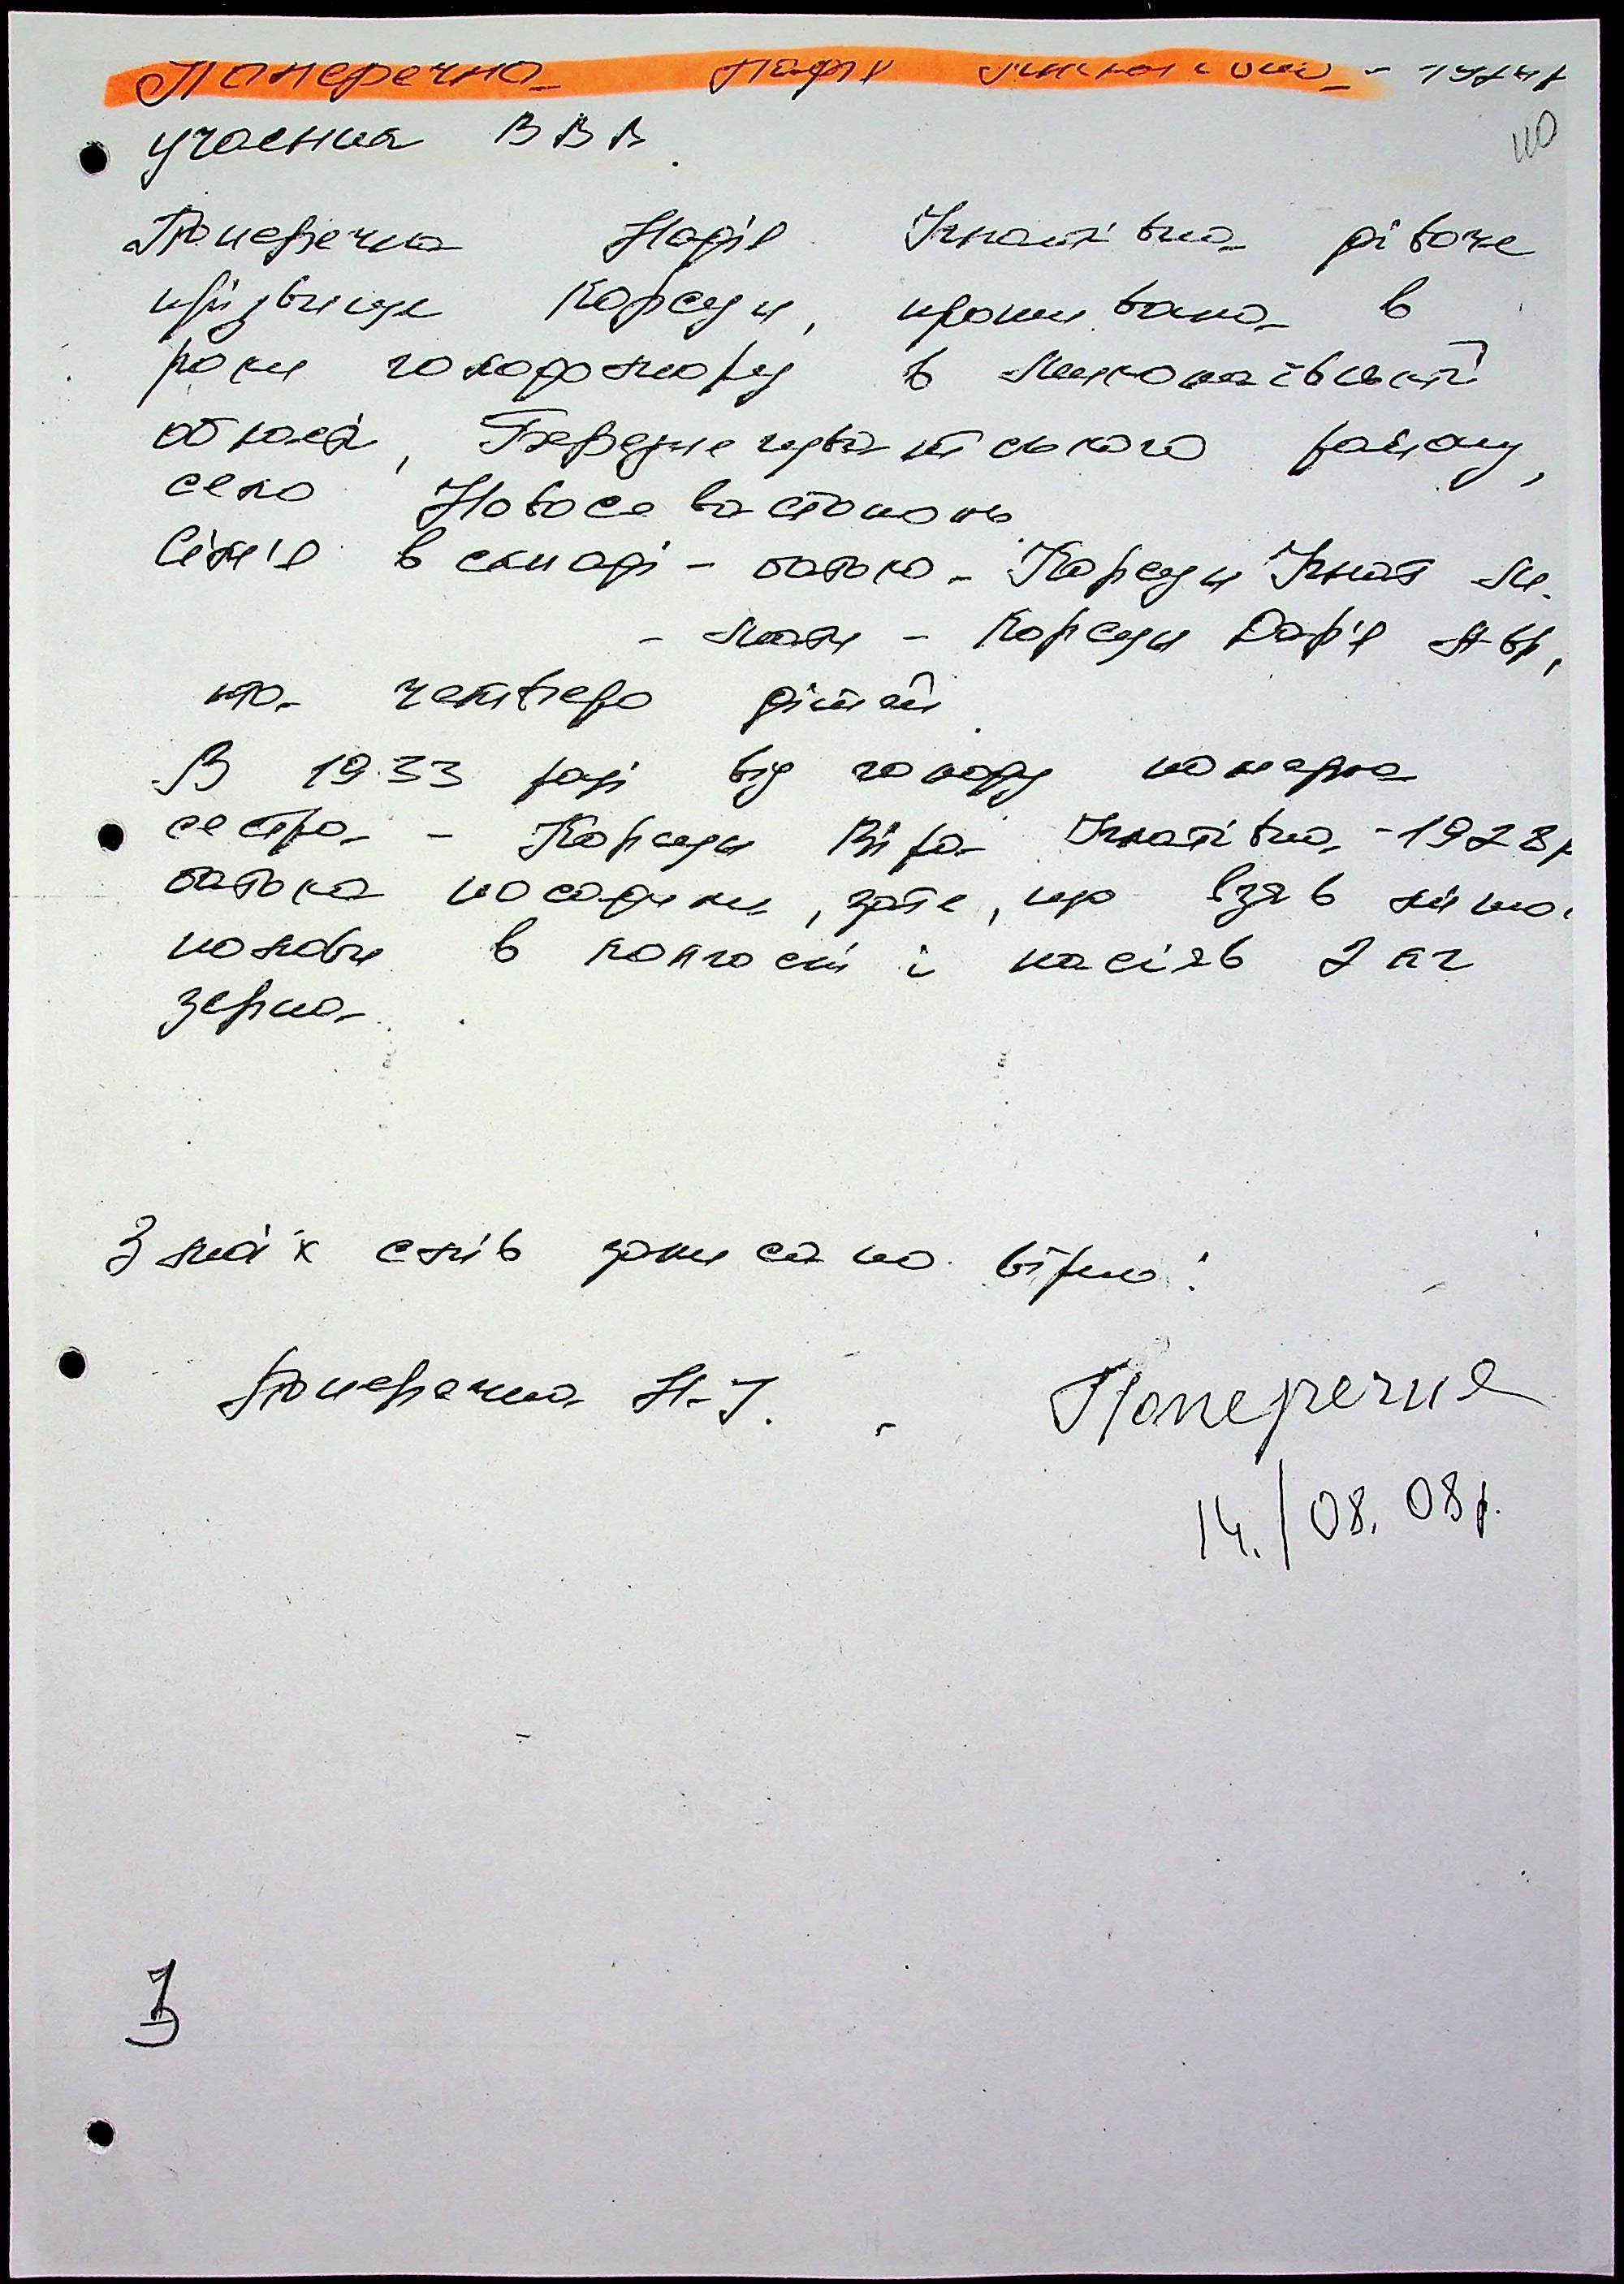 Поперечна Надія Гнатівна - 1924р
учасник ВВВ.
110
Поперечна Надія Ігнатівна дівоче
прізвище Корсун, проживала в
роки голодомору в Миколаївській
області, Березнегуватського району,
село Новосевастополь
Сім'я в складі - батько - Корсун Ігнат Ми.
- мати - Корсун Дар'я Ав.,
та четверо дітей.
В 1933 році від голоду померла
сестра - Корсун Віра Ігнатівна - 1928р
батька посадили, зате, що взяв
полови в колгоспі і насіяв 2 кг
зерна.
З моїх слів записано вірно:
Поперечна Н. І. - Поперечна
14./08. 08р.